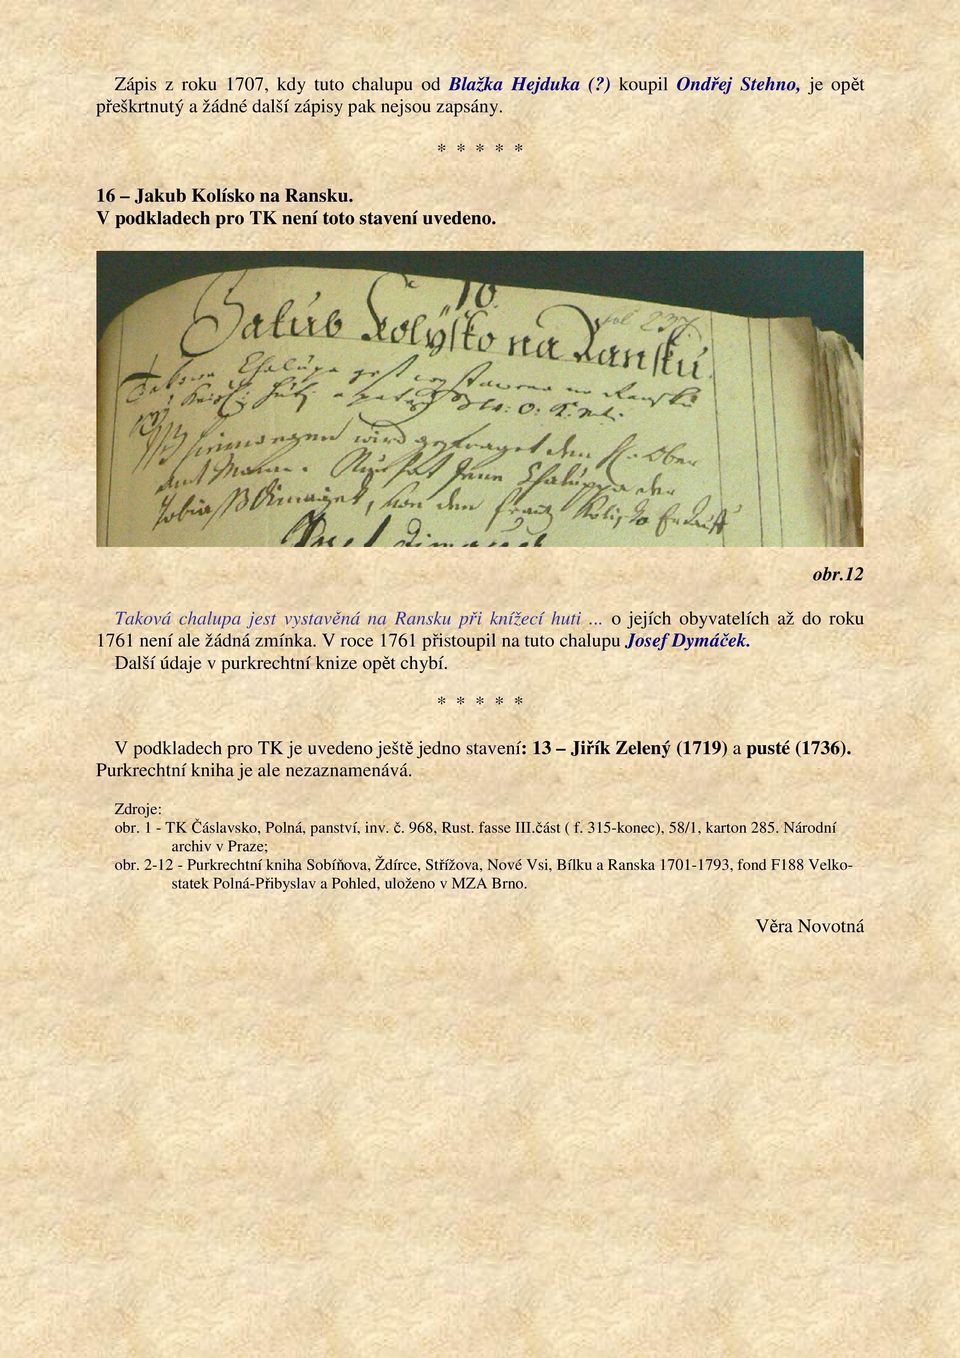 Zápis z roku 1707, kdy tuto chalupu od Blažka Hejduka (?) koupil Ondřej Stehno, je opět
přeškrtnutý a žádné další zápisy pak nejsou zapsány.
* * * * *
16 – Jakub Kolísko na Ransku.
V podkladech pro TK není toto stavení uvedeno.
Jakub Kolÿsko na Ransku.
Takowa Chalupa gest wystawena na Ransku
wird gefraget dem H: Ober
amt Mann. Chaluppa der
Tobias von den Frantz Kolisko Erkauft
obr.12
Taková chalupa jest vystavěná na Ransku při knížecí huti ... o jejích obyvatelích až do roku
1761 není ale žádná zmínka. V roce 1761 přistoupil na tuto chalupu Josef Dymáček.
Další údaje v purkrechtní knize opět chybí.
* * * * *
V podkladech pro TK je uvedeno ještě jedno stavení: 13 – Jiřík Zelený (1719) a pusté (1736).
Purkrechtní kniha je ale nezaznamenává.
Zdroje:
obr. 1 - TK Čáslavsko, Polná, panství, inv. č. 968, Rust. fasse III.část ( f. 315-konec), 58/1, karton 285. Národní
archiv v Praze;
obr. 2-12 - Purkrechtní kniha Sobíňova, Ždírce, Střížova, Nové Vsi, Bílku a Ranska 1701-1793, fond F188 Velko-
statek Polná-Přibyslav a Pohled, uloženo v MZA Brno.
Věra Novotná